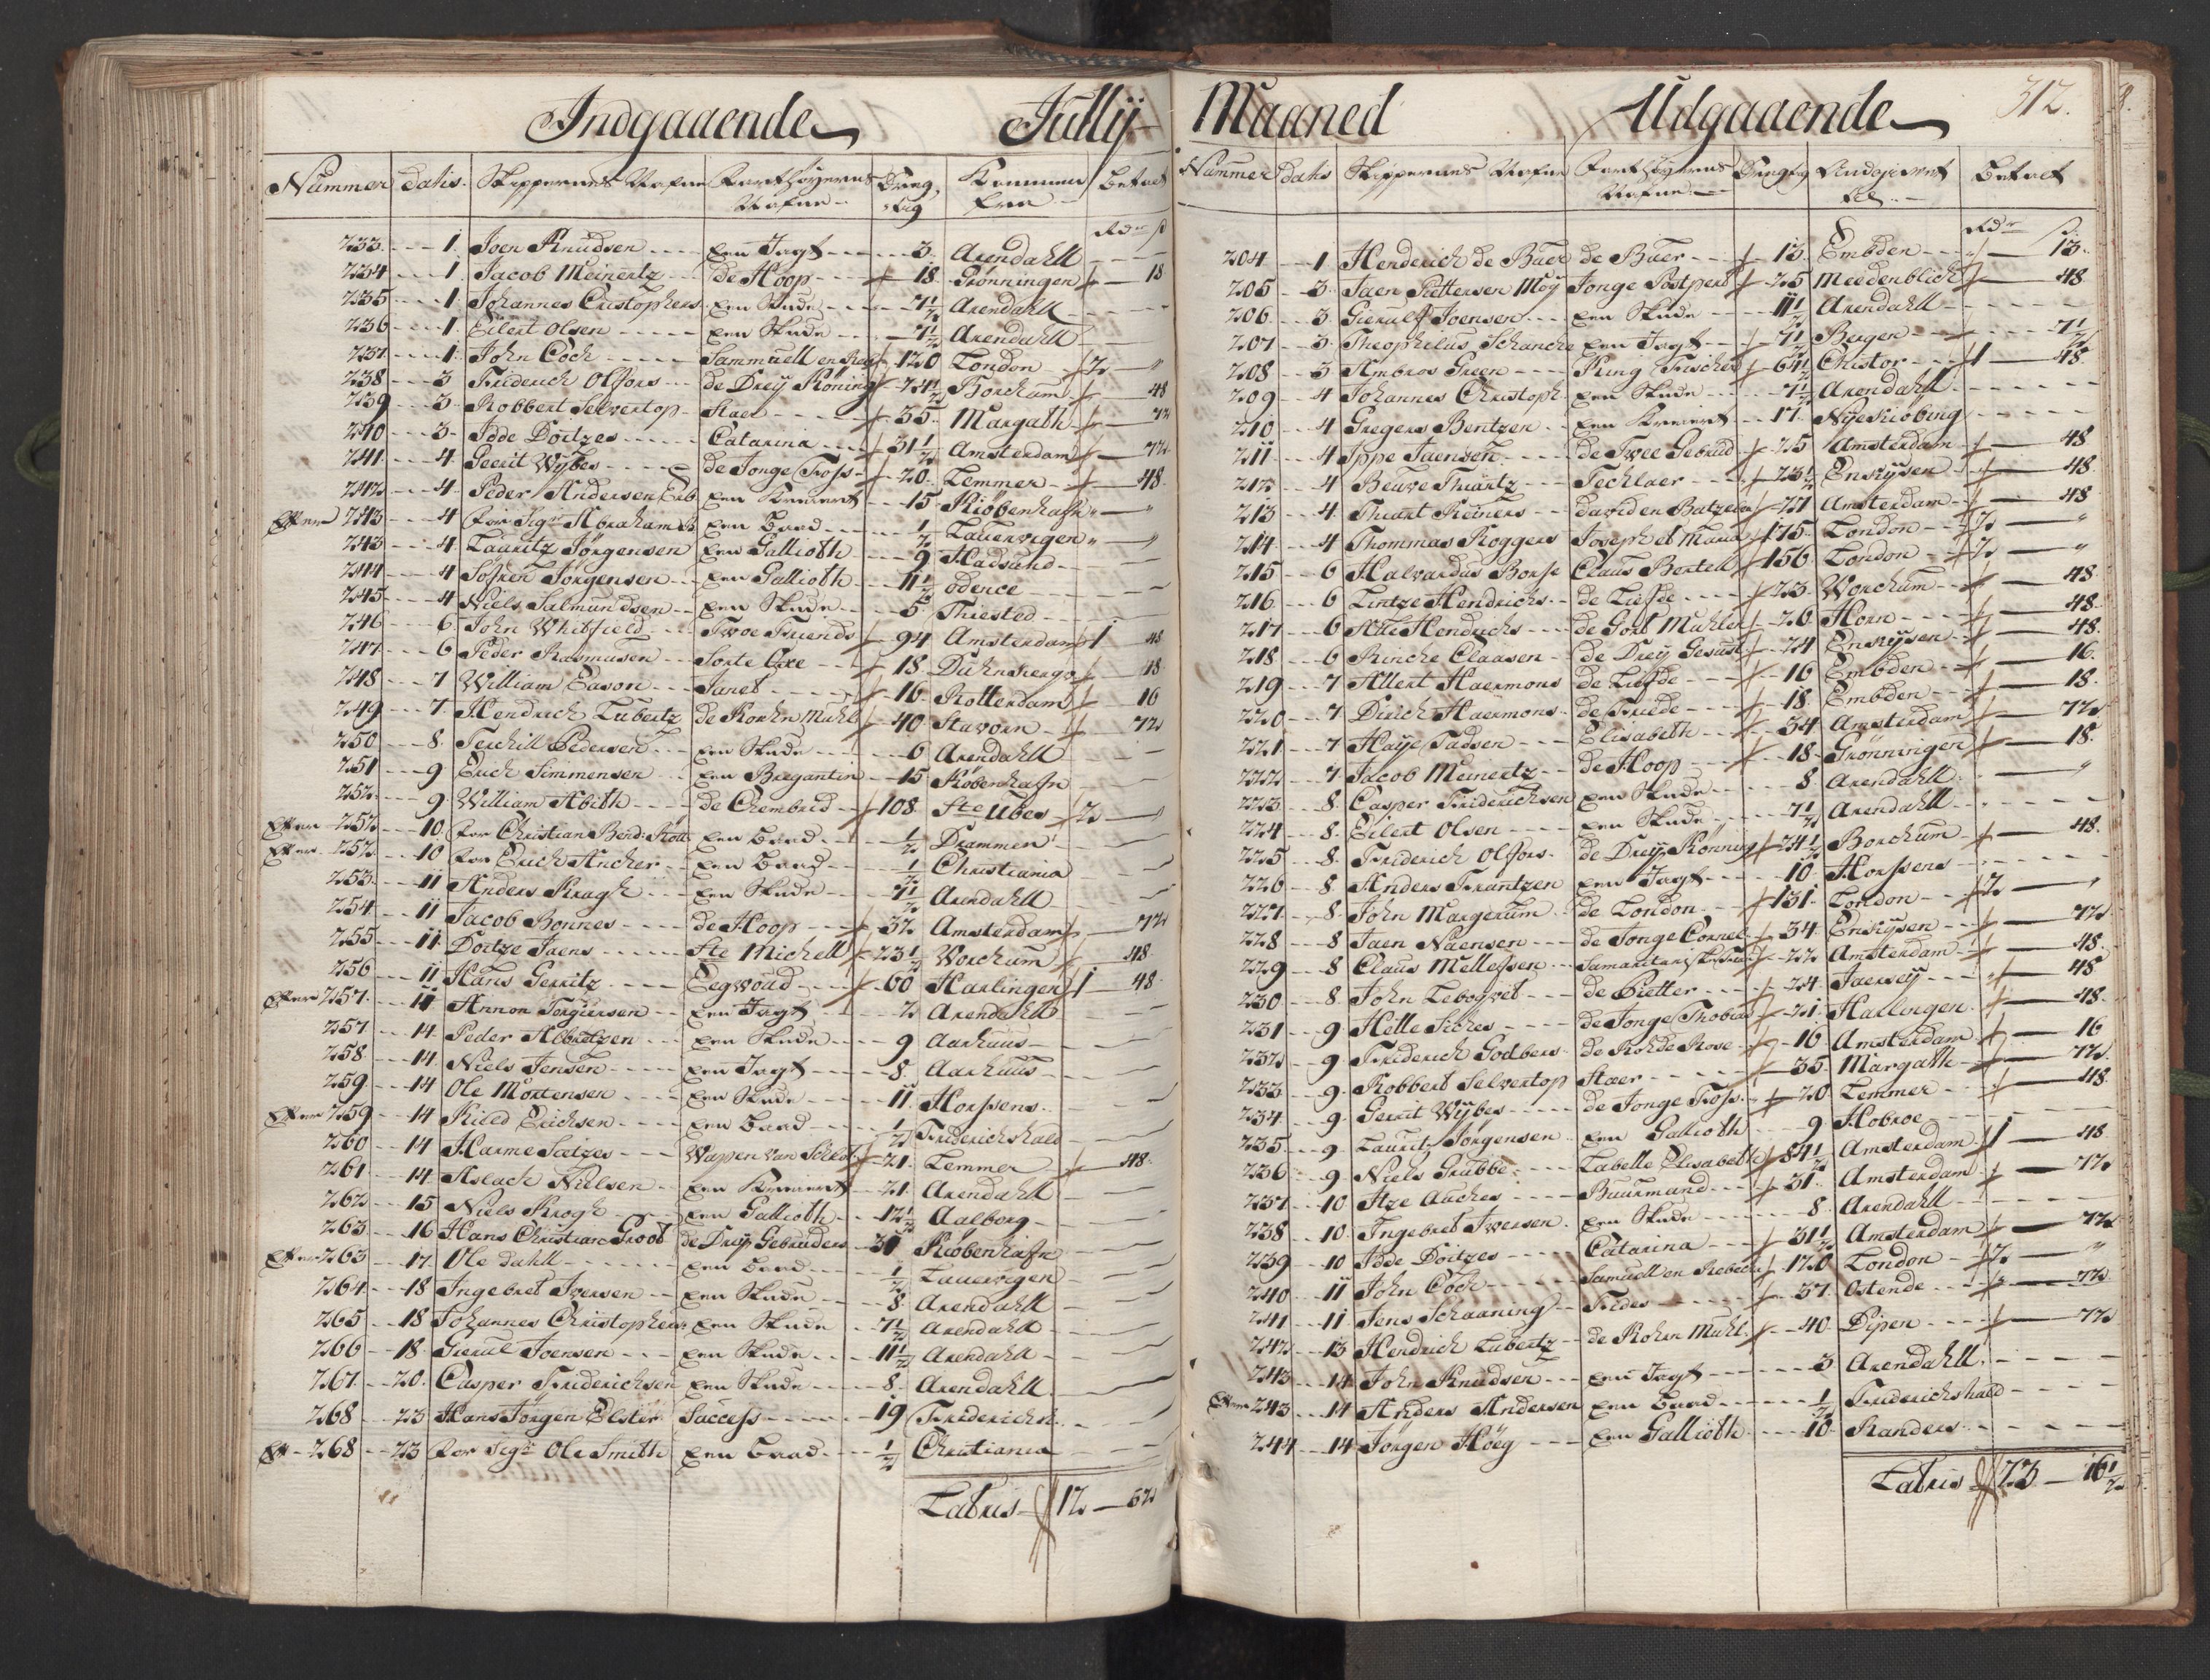 Indgaaende Jullij
Nummer datis Skippernes Nafne Farthøyernes Nafne Dræg. Kommen fra Betalt
Rdr ß
233 1 Joen Knudsen een Jagt 3 Arendahll
234 1 Jacob Meinertz de Hoop 18 Grønningen 18
235 1 Johannes Cristophers een Skude 7½ Arendahll
236 1 Eilert Olsen een Skude 7½ Arendahll
237 1 John Coch Sammuell en 120 London 2 "
238 3 Friderich Olfors de Dreij Köning 24½ Borchum 48
239 3 Robbert Selvertop Staer 35 Margath 72
240 3 Idde Doitzes Catarina 31½ Amsterdam 72
241 4 Geerit Wijbes de Jonge Foss 20 Lemmer 48
242 4 Peder Andersen Erb een Kreiert 15 Kiøbenhafn "
Efter 243 4 for Sigr Abraham een Baad ½ Lauervigen "
243 4 Lauritz Jörgensen een Gallioth 9 Hadsund
244 4 Søfren Jørgensen een Gallioth 11½ Odence
245 4 Niels Salmundsen een Skude 5 Thiested
246 6 John Whitfield Twoe Friends 94 Amsterdam 1 48
247 6 Peder Rasmusen Sorte Oxe 18 Duhnskerga 18
248 7 William Eason Janet 16 Rotterdam 16
249 7 Hendrich Lubertz de Korhn Muhl 40 Stavorn 72
250 8 Terchill Pedersen een Skude 6 Arendahll
251 9 Erich Simmensen een Bregantin 15 Kiøbenhafn
252 9 William Abith de Chembrid 108 Ste Ubes 2 "
Efter 252 10 for Christian Bend: een Baad ½ Drammen
Efter 252 10 for Erich Ancher een Baad ½ Christiania
253 11 Anders Kragh een Skude 7½ Arendahll
254 11 Jacob Bonnes de Hoop 32 Amsterdam 72
255 11 Doitze Jaens Ste Michell 23½ Worchum 48
256 11 Hans Gerritz Eegwoud 60 Harlingen 1 48
Efter 257 11 Annon Torgiersen een Jagt 2 Arendahll
257 14 Peder Albretzen een Skude 9 Aarhuus
258 14 Niels Jensen een Jagt 8 Aarhuus
259 14 Ole Mortensen een Skude 11 Horssens
Efter 259 14 Kield Erichsen een Baad ½ Friderichshald
260 14 Harme Satzes Wapen van 21 Lemmer 48
261 14 Aslach Nielsen een Kreiert 21 Arendahll
262 15 Niels Krogh een Gallioth 12½ Aalborg
263 16 Hans Christian Groot de Dreij Gebruders 31 Kiøbenhafn
Efter 263 17 Ole Dahll een Baad ½ Lauervigen
264 18 Ingebret Iversen een Skude 8 Arendahll
265 18 Johannes Christophers een Skude 7½ Arendahll
266 18 Gierul Joensen een Skude 11½ Arendahll
267 20 Casper Friderichsen een Skude 8 Arendahll
268 23 Hans Jørgen Elster Success 19 Friderichs
Eft 268 23 for Sigr Ole Smith een Baad ½ Christiania
Latris 12 62
Maaned Udgaaende 312.
Nummer datis Skippernes Nafne Farthøyernes Nafne Drægtig Til Betalt
Rdr ß
204 1 Henderich de Buer de Buer 13 Embden " 13
205 3 Jaen Pettersen Moy Jonge Postpert 25 Meedenblich 48
206 3 Gierulf Joensen een Skude 11½ Arendahll
207 3 Theophilus Schanche een Jagt 7½ Bergen 7½
208 3 Ambros Green King Fischer 64½ Christor 1 48
209 4 Johannes Christoph een Skude 7½ Arendahll
210 4 Gregers Bentzen een Kreiert 17 Nÿekiøbing
211 4 Ippe Jaensen de Twee Gebrud 25 Amsterdam 48
212 4 Beuwe Thiantz Techlaer 23½ Enkijsen 48
213 4 Thiant Reiners David en Batzeba 27 Amsterdam 48
214 4 Thommas Roggers Joseph et Maria 175 London 2 "
215 6 Halvardus Borse Claus Bortell 156 London 2 "
216 6 Lintze Hendrichs de Liefde 23 Worchum 48
217 6 Atte Hendrichs de Gort Muhlen 26 Horn 48
218 6 Rinche Claasen de Dreij Gesust 24 Enkijsen 48
219 7 Allert Haermons de Liefde 16 Embden 16
220 7 Dirich Haermons de Friede 18 Embden 18
221 7 Haije Tadsen Elisabeth 34 Amsterdam 72
222 7 Jacob Meinertz de Hoop 18 Grønningen 18
223 8 Casper Friderichsen een Skude 8 Arendahll "
224 8 Eilert Olsen een Skude 7½ Arendahll
225 8 Friderich Olfors de Dreij Kønning 24½ Borchum 48
226 8 Anders Frantzen een Jagt 10 Horssens
227 8 John Margerum de London 131 London 2 "
228 8 Jaen Naensen de Jonge Cornel 34 Enkijsen 72
229 8 Claus Mellessen Samaritans 22 Amsterdam 48
230 8 John Lebogvet de Pretter 24 Jaersey 48
231 9 Helle Siches de Jonge Thobias 21 Harlingen 48
232 9 Friderich Godbers de Rohde Rose 16 Amsterdam 16
233 9 Robbert Selvertop Staer 35 Margath 72
234 9 Gerrit Wijbes de Jonge Foss 20 Lemmer 48
235 9 Lauritz Jörgensen een Gallioth 9 Hobroe
236 9 Niels Grubbe Labelle Elisabeth 84½ Amsterdam 1 48
237 10 Itze Auches Buurmand 31 Amsterdam 72
238 10 Ingebret Iversen een Skude 8 Arendahll
239 10 Idde Doitzes Catarina 31½ Amsterdam 72
240 11 John Coch Samuell en Rebecka 120 London 2 "
241 11 Jens Schaaning Frides 37 Ostende 72
242 13 Hendrich Lubertz de Kohrn Muhl 40 Dipen 72
243 14 John Knudsen een Jagt 3 Arendahll
Efter 243 14 Anders Andersen een Baad ½ Friderichshald
244 14 Jörgen Höeg een Gallioth 10 Randers
Latris 23 16½